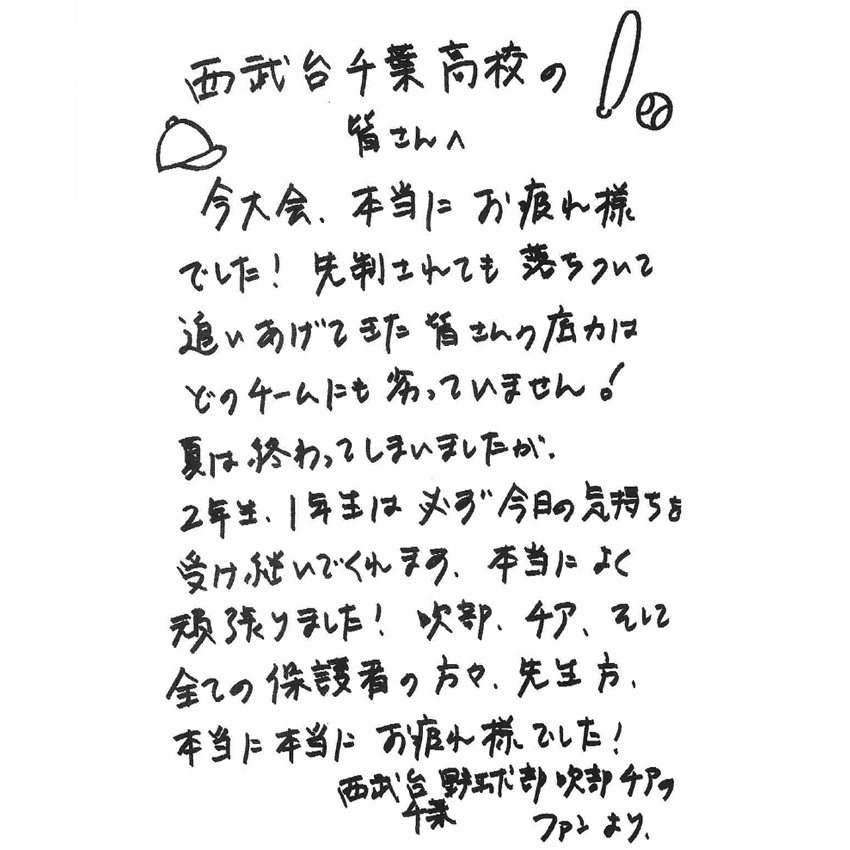 西武台千葉高校の
皆さんへ
今大会、本当にお疲れ様
でした！先制されても落ちついて
追いあげてきた皆さんの底力は
どのチームにも劣っていません！
夏は終わってしまいましたが、
2年生、1年生は必ず今日の気持ちを
受け継いでくれます、本当によく
頑張りました！吹部、チア、そして
全ての保護者の方々、先生方、
本当に本当にお疲れ様でした！
西武台千葉野球部吹部チアの
ファンより、